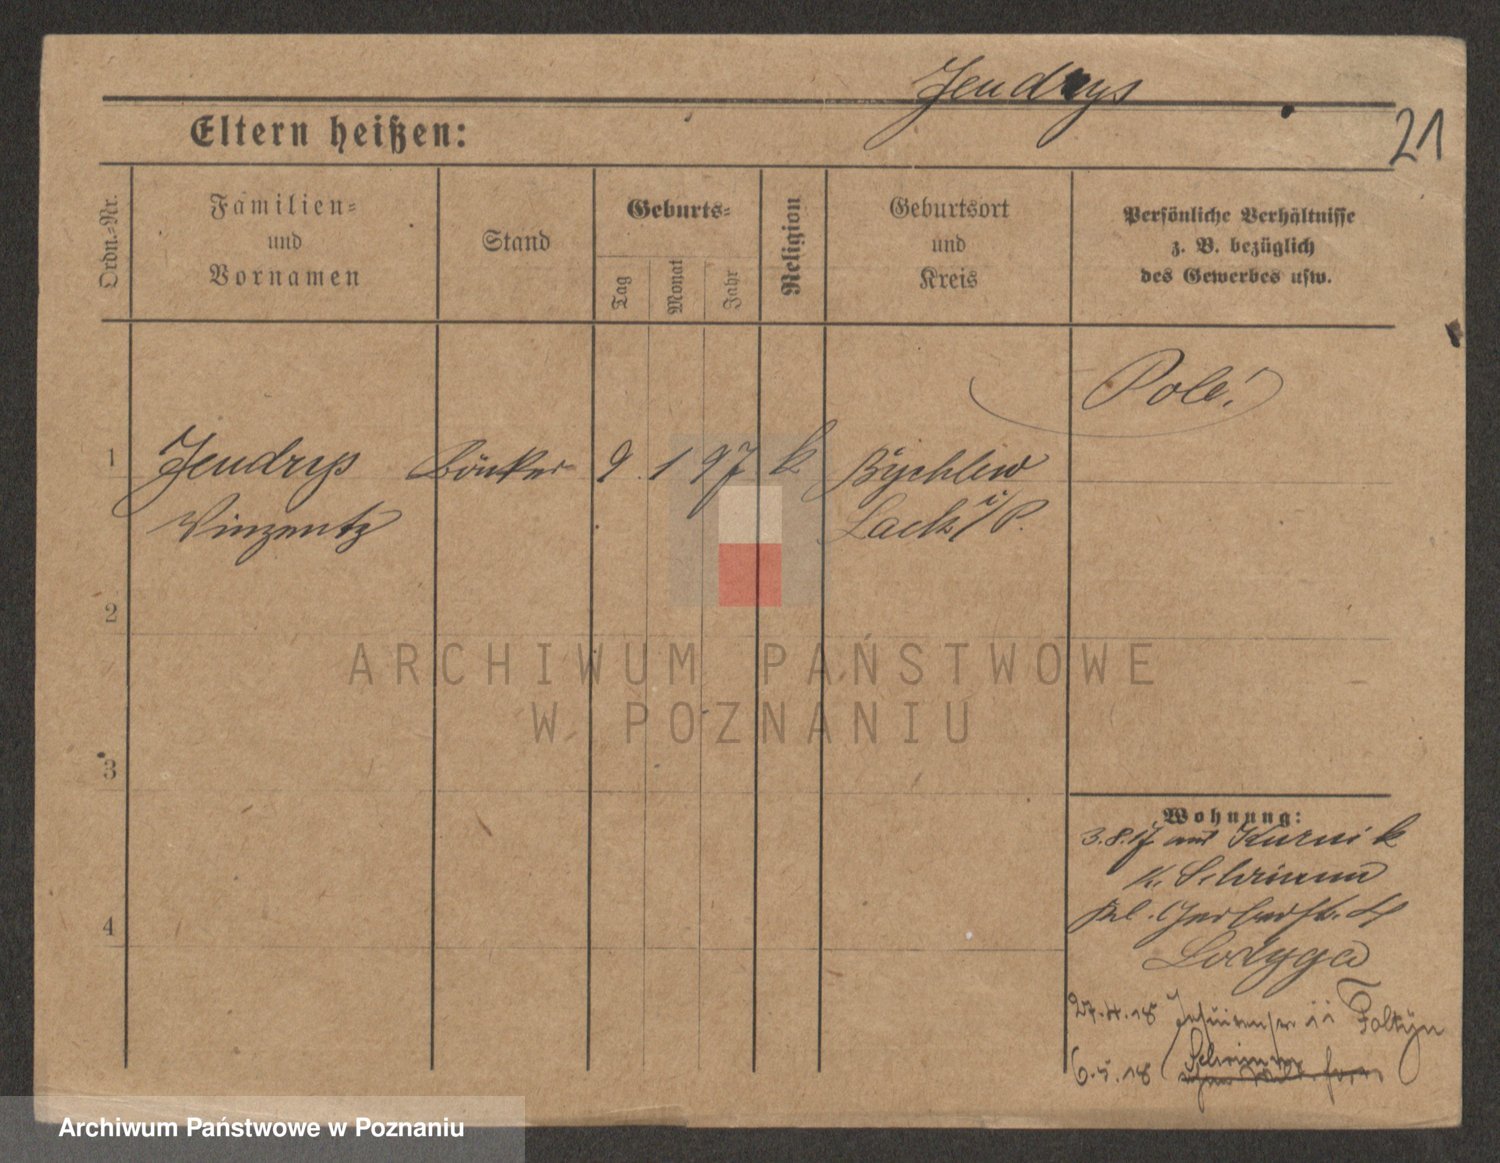 Jendrys
21
Eltern heißen:
Ordn.-Nr.
Familien-
und
Vornamen
Stand
Geburts-
Tag
Monat
Jahr
Religion
Geburtsort
und
Kreis
Persönliche Verhältnisse
z. B. bezüglich
des Gewerbes usw.
Pole!
1
Jendrys
Vinzentz
9 1 97 k
Bychlew
Lack i/P.
2
3
4
Wohnung:
3.8.17 aus Kurnik
K. Schrimm
Kl. Gerberstr. 4
Lodyga
27.4.18 Jesuitenstr. 11 Foltyn
6.5.18 Schrimm
ARCHIWUM PAŃSTWOWE
W POZNANIU
Archiwum Państwowe w Poznaniu